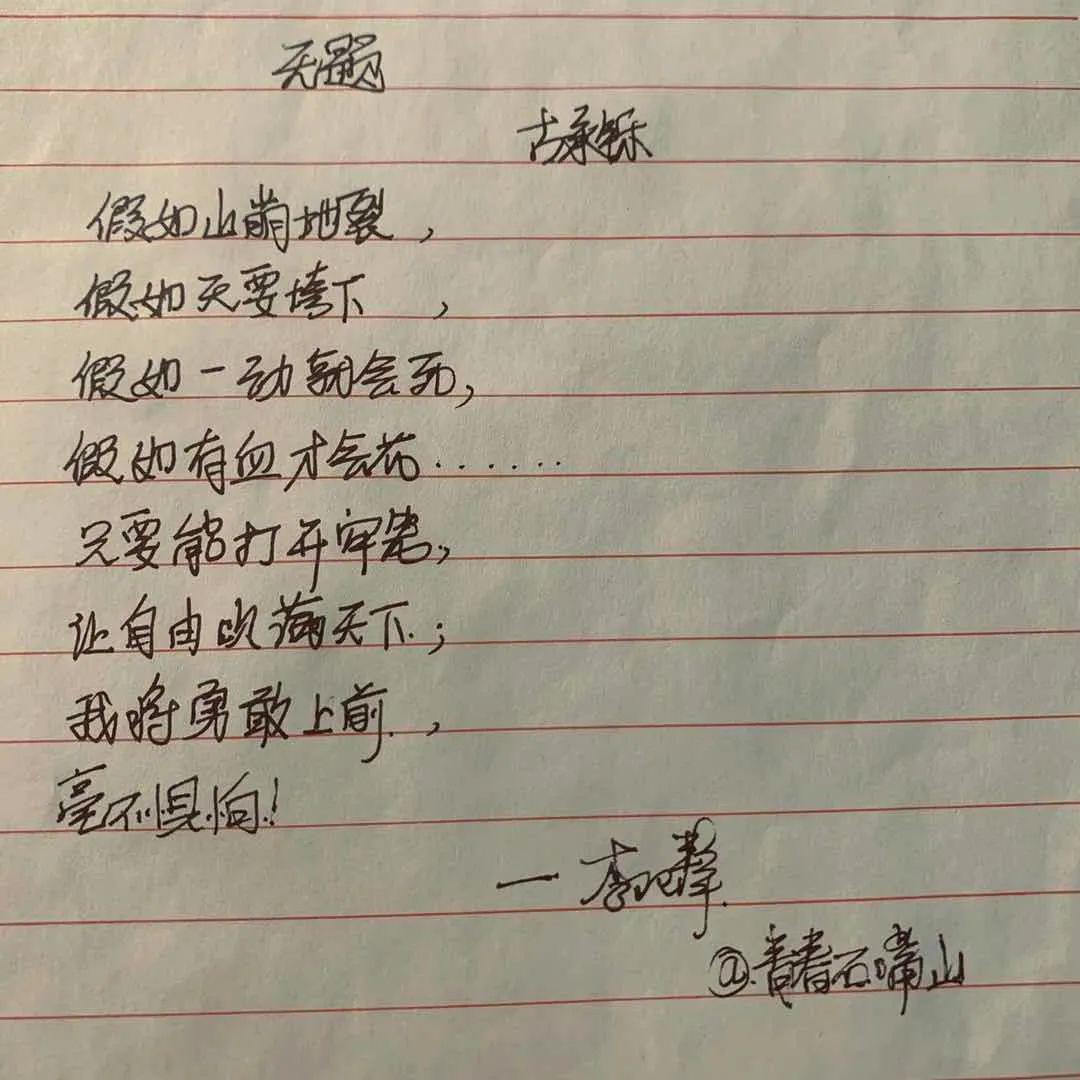 无题
古承铄
假如山崩地裂，
假如天要垮下，
假如一动就会死，
假如有血才会花......
只要能打开牢笼，
让自由吹满天下；
我将勇敢上前，
毫不惧怕！
—李
@青春石嘴山